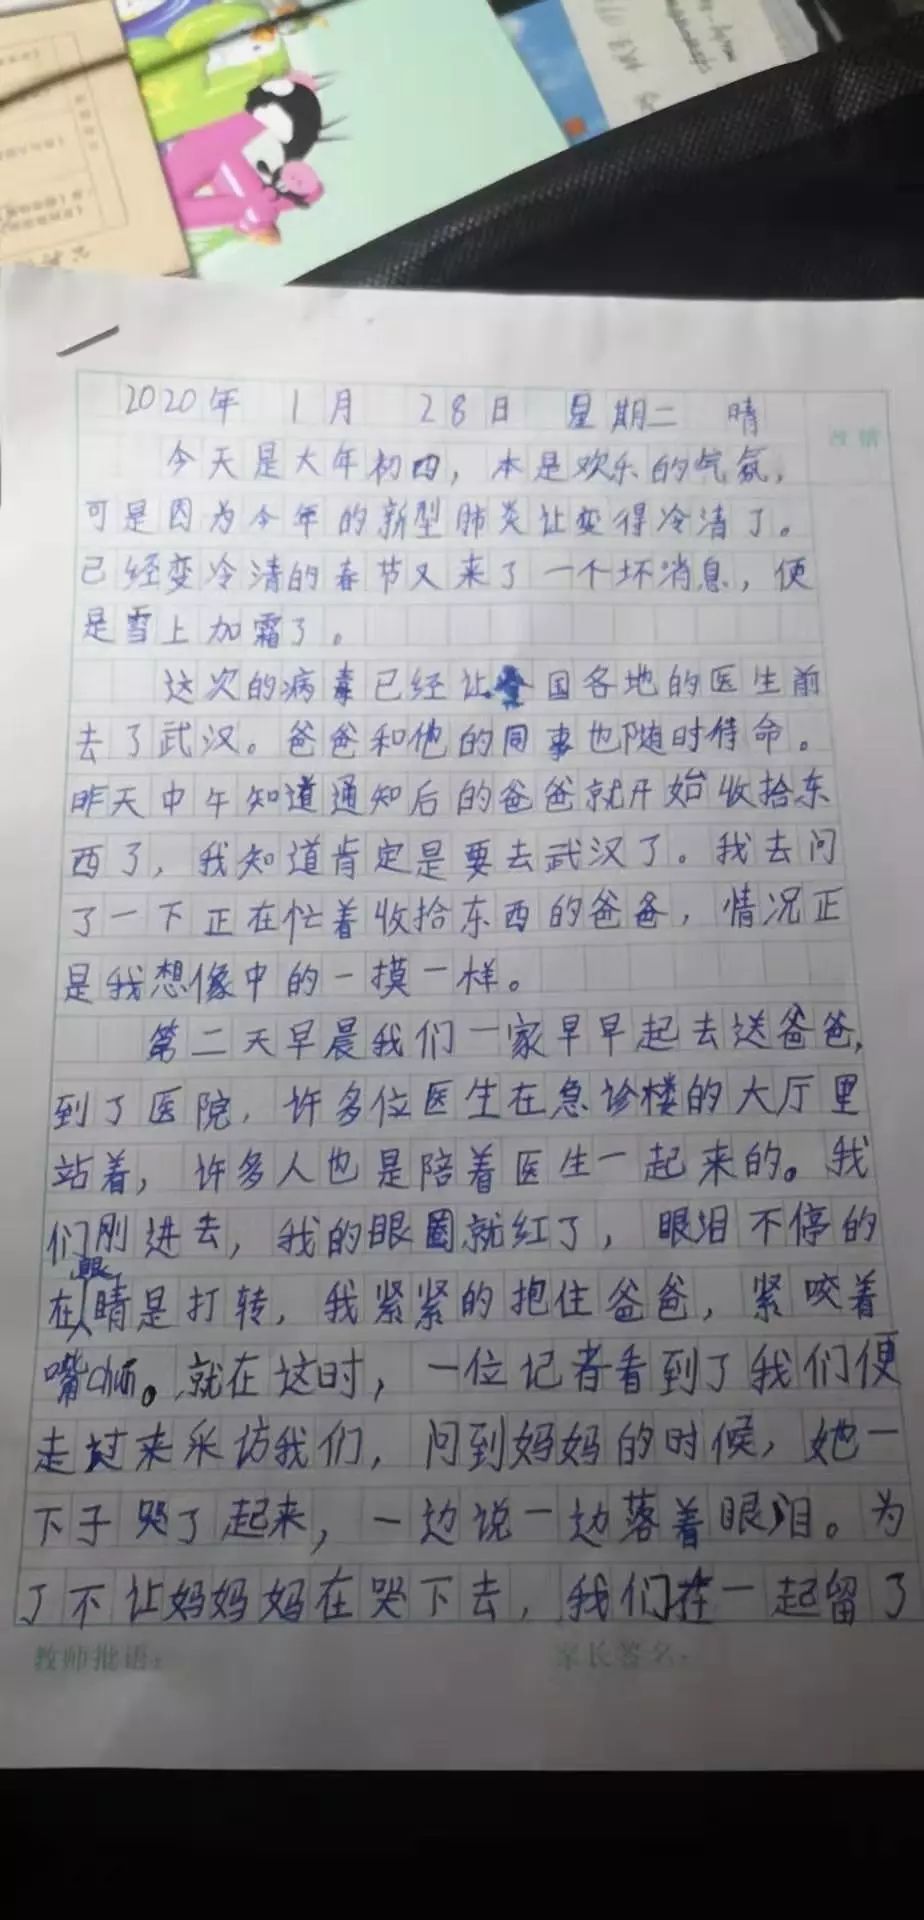 2020年 1月 28日 星期二 晴
今天是大年初四，本是欢乐的气氛，
可是因为今年的新型肺炎让变得冷清了。
已经变冷清的春节又来了一个坏消息，便
是雪上加霜了。
这次的病毒已经让全国各地的医生前
去了武汉。爸爸和他的同事也随时待命。
昨天中午知道通知后的爸爸就开始收拾东
西了，我知道肯定是要去武汉了。我去问
了一下正在忙着收拾东西的爸爸，情况正
是我想像中的一摸一样。
第二天早晨我们一家早早起去送爸爸，
到了医院，许多位医生在急诊楼的大厅里
站着，许多人也是陪着医生一起来的。我
们刚进去，我的眼圈就红了，眼泪不停的
在眼睛是打转，我紧紧的抱住爸爸，紧咬着
嘴chún。就在这时，一位记者看到了我们便
走过来采访我们，问到妈妈的时候，她一
下子哭了起来，一边说一边落着眼泪。为
了不让妈妈妈在哭下去，我们在一起留了
教师批语：
家长签名：